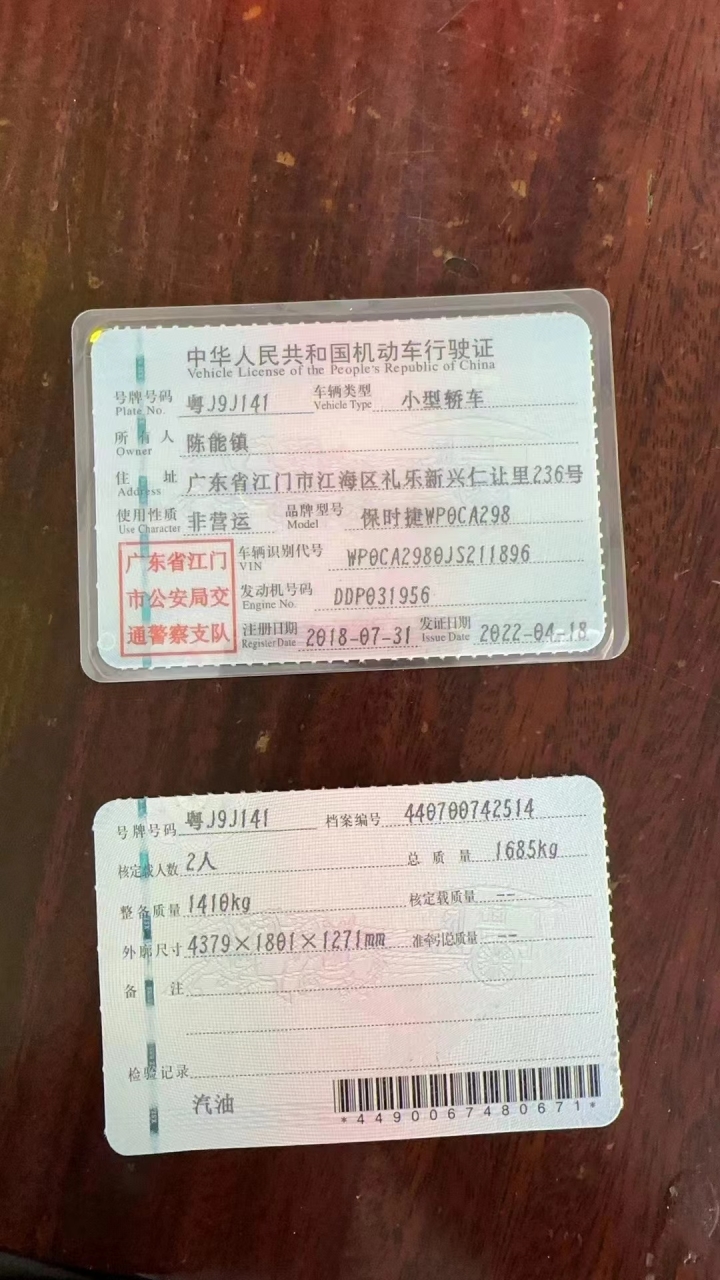 中华人民共和国机动车行驶证
Vehicle License of the People's Republic of China
号牌号码 Plate No. 粤J9J141 车辆类型 Vehicle Type 小型轿车
所有人 Owner 陈能镇
住址 Address 广东省江门市江海区礼乐新兴仁让里236号
使用性质 Use Character 非营运 品牌型号 Model 保时捷WP0CA298
广东省江门
市公安局交
通警察支队
车辆识别代号 VIN WP0CA2980JS211896
发动机号码 Engine No. DDP031956
注册日期 Register Date 2018-07-31 发证日期 Issue Date 2022-04-18
号牌号码 粤J9J141 档案编号 440700742514
核定载人数 2人 总质量 1685kg
整备质量 1410kg 核定载质量 --
外廓尺寸 4379×1801×1271mm 准牵引总质量 --
备注
检验记录
汽油
*4490067480671*